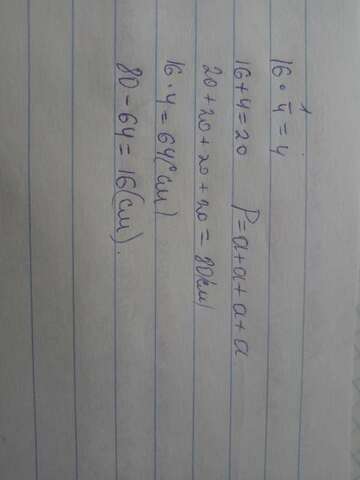 16 · 1/4 = 4
16+4=20 P=a+a+a+a
20+20+20+20=80(см)
16·4=64(см)
80-64=16(см).